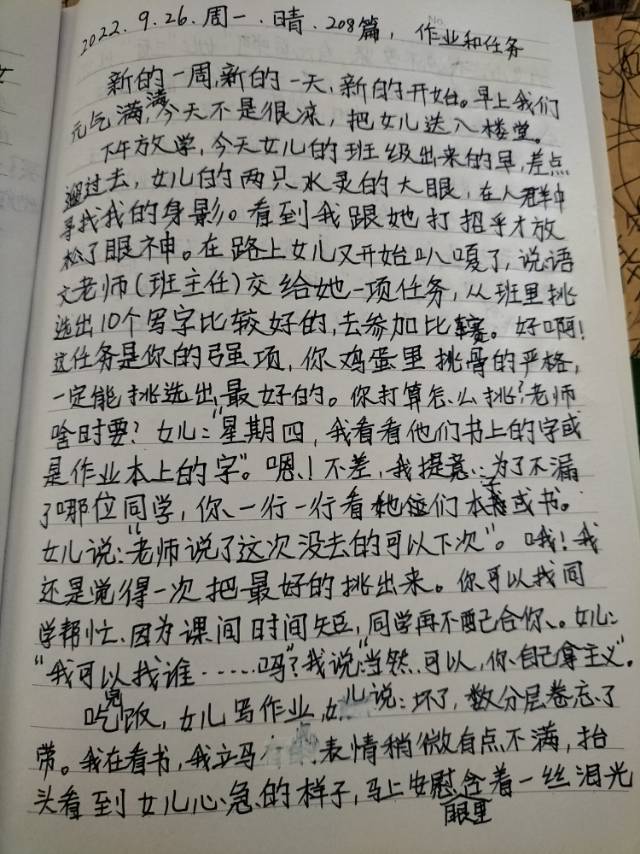 2022.9.26.周一.晴.208篇，作业和任务
新的一周,新的一天,新的开始。早上我们
元气满满,今天不是很凉，把女儿送入楼堂。
下午放学，今天女儿的班级出来的早,差点
溜过去，女儿的两只水灵的大眼，在人群中
寻找我的身影。看到我跟她打招乎才放
松了眼神。在路上女儿又开始叭嘎了，说语
文老师(班主任)交给她一项任务，从班里挑
选出10个写字比较好的，去参加比赛。好啊！
这任务是你的强项，你鸡蛋里挑骨的严格，
一定能挑选出最好的。你打算怎么挑？老师
啥时要？女儿：“星期四，我看看他们书上的字或
是作业本上的字”。嗯！不差，我提意：为了不漏
了哪位同学，你一行一行看他们本子或书。
女儿说：“老师说了这次没去的可以下次”。哦！我
还是觉得一次把最好的挑出来。你可以找同
学帮忙、因为课间时间短，同学再不配合你。女儿：
“我可以找谁……吗”？我说“当然可以，你自己拿主义”。
吃完饭，女儿写作业，女儿说：坏了，数分层卷忘了
带。我在看书，我立马 表情稍微有点不满，抬
头看到女儿心急的样子，马上安慰含着一丝泪光
眼里